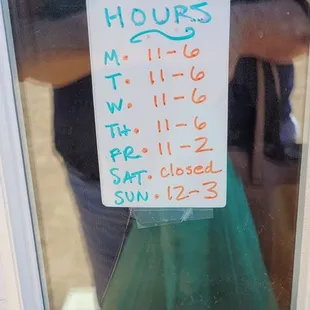 HOURS
M. 11-6
T. 11-6
W. 11-6
TH. 11-6
FR. 11-2
SAT. closed
SUN. 12-3